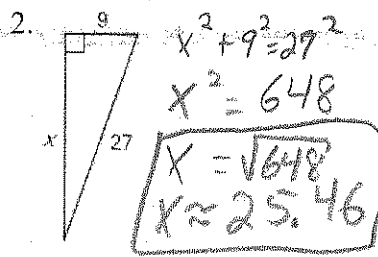 2.
9
x
27
x² + 9² = 27²
x² = 648
x = √648
x ≈ 25.46